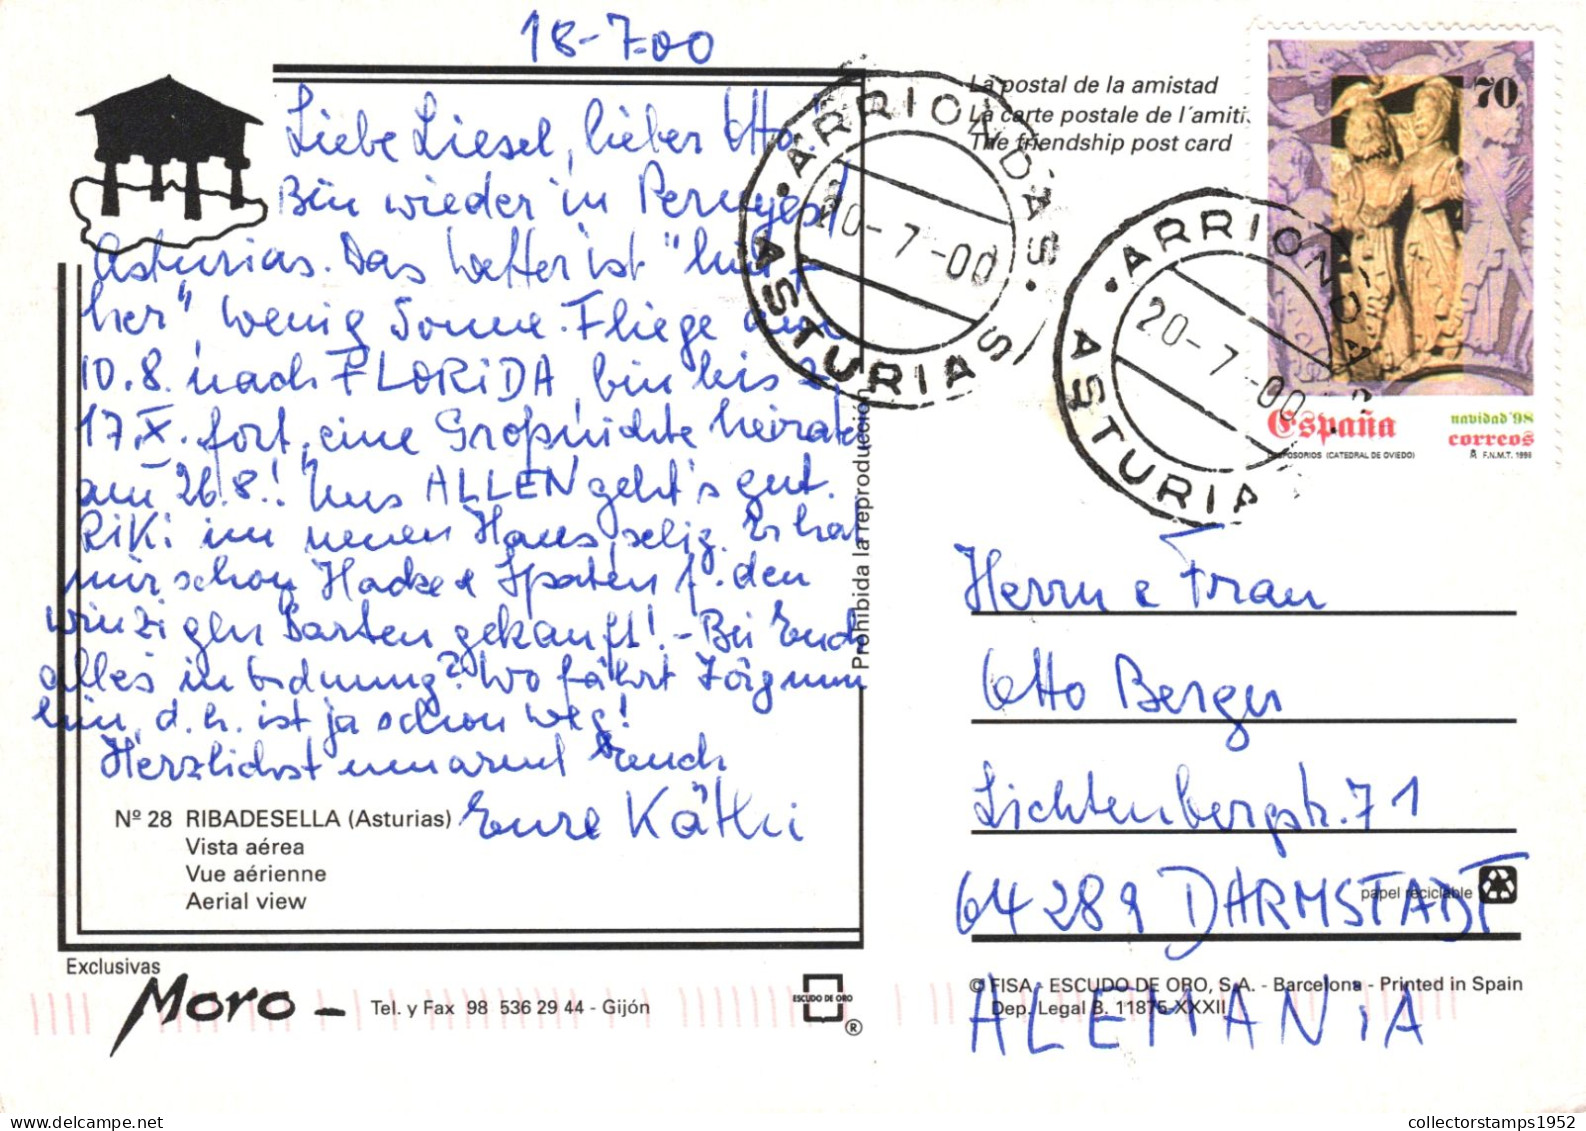 18-7-00
Liebe Liesel, lieber Otto!
Bin wieder in
Asturias. Das Wetter ist "hier-
her", wenig Sonne. Fliege am
10.8. nach FLORiDA, bin bis z.
17.X. fort, eine Großnichte heiratet
am 26.8.! Uns ALLEN geht's gut.
RiKi im neuen Haus selig. Er hat
mir schon Hacke & Spaten f. den
winzigen Garten gekauft! - Bei Euch
alles in Ordnung? Wo fährt Jörg nun
hin, d.h. ist ja schon weg!
Herzlichst umarmt Euch
Eure Käthi
Nº 28 RIBADESELLA (Asturias)
Vista aérea
Vue aérienne
Aerial view
Exclusivas
Moro - Tel. y Fax 98 536 29 44 - Gijón
ESCUDO DE ORO
®
Prohibida la reproducción
La postal de la amistad
La carte postale de l'amiti
The friendship post card
ARRIONDAS
20-7-00
ASTURIAS
ARRIONDAS
20-7-00
ASTURIA
70
España
navidad '98
correos
DESPOSORIOS (CATEDRAL DE OVIEDO)
F.N.M.T. 1998
Herrn & Frau
Otto Berger
Lichtenbergstr. 71
64289 DARMSTADT
papel reciclable
ALEMANiA
© FISA, ESCUDO DE ORO, S.A. - Barcelona - Printed in Spain
Dep. Legal B. 11875-XXXII
collectorstamps1952